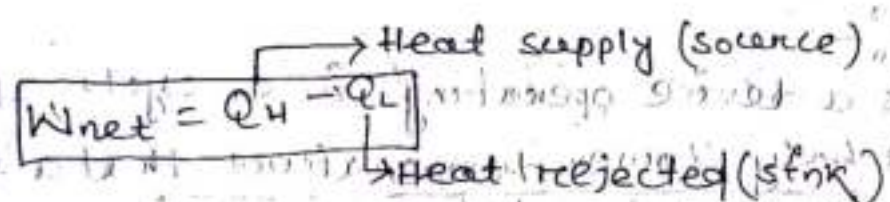 → Heat supply (source)
Wnet = QH - QL
→ Heat rejected (sink)